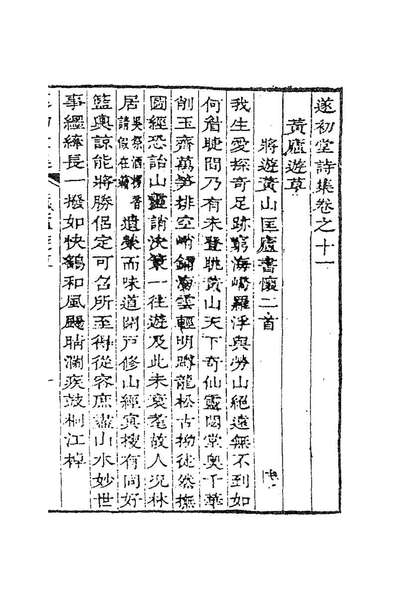 遂初堂詩集卷之十一
黃廬遊草
將遊黃山匡廬書懷二首
我生愛探奇足跡窮海嶠羅浮與勞山絕遠無不到如
何眉睫間乃有未登眺黃山天下奇仙靈閟堂奧千峯
削玉齊萬笋排空峭鋪海雲輕明蹲龍松古拗徒然撫
圖經恐詒山靈誚決策一往遊及此未衰耄故人況林
居 遺榮而味道閉戶修山經冥搜有同好
籃輿諒能將勝侶定可召所至得從容庶盡山水妙世
事纏綿長一撥如快鷂和風颺晴瀾疾鼓桐江棹